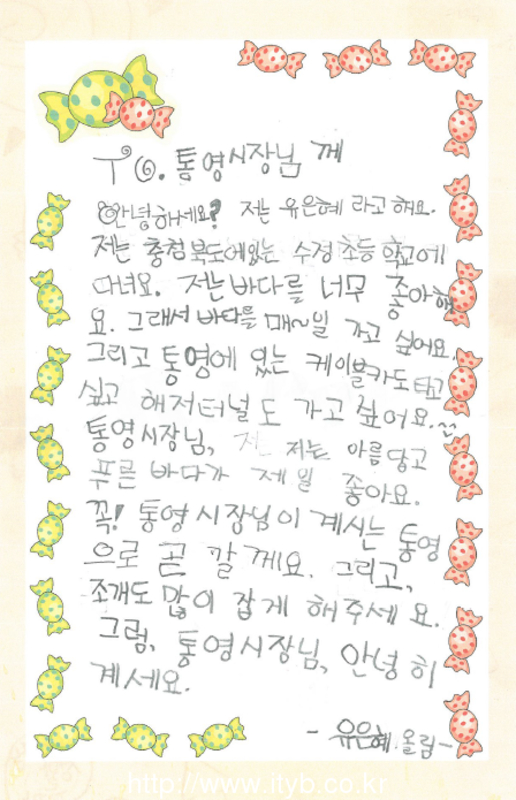 To. 통영시장님 께
안녕하세요? 저는 유은혜 라고 해요.
저는 충청북도에있는 수정 초등 학교에
다녀요. 저는바다를 너무 좋아해
요. 그래서 바다를 매~일 가고 싶어요.
그리고 통영에 있는 케이블카도 타고
싶고 해저터널도 가고 싶어요.^^
통영시장님, 저는 아름답고
푸른 바다가 제일 좋아요.
꼭! 통영시장님이 계시는 통영
으로 곧 갈께요. 그리고,
조개도 많이 잡게 해주세요.
그럼, 통영시장님, 안녕히
계세요.
- 유은혜 올림-
http://www.ityb.co.kr